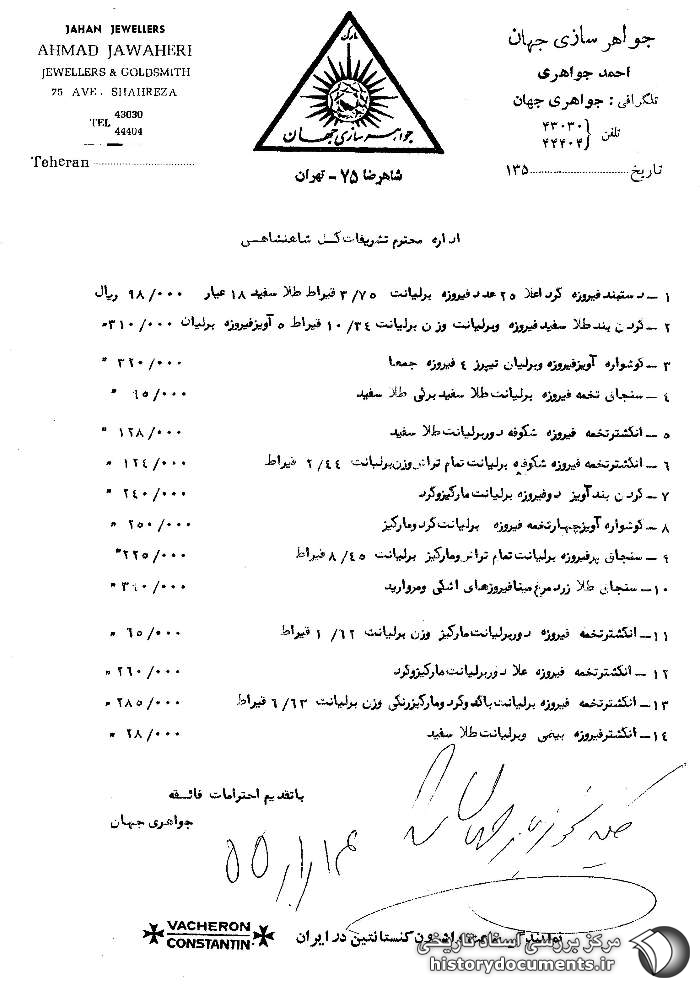 JAHAN JEWELLERS
AHMAD JAWAHERI
JEWELLERS & GOLDSMITH
75 AVE. SHAHREZA
TEL 43030
44404
Teheran
جواهر سازی جهان
احمد جواهری
تلگرافی : جواهری جهان
تلفن ۴۳۰۳۰
۴۴۴۰۴
تاریخ ۱۳۵
مارک
جواهر سازی جهان
شاهرضا ۷۵ - تهران
اداره محترم تشریفات کل شاهنشاهی
۱ - دستبند فیروزه گرد اعلا ۲۵ عدد فیروزه برلیانت ۳/۷۵ قیراط طلا سفید ۱۸ عیار ۹۸/۰۰۰ ریال
۲ - گردن بند طلا سفید فیروزه وبرلیانت وزن برلیانت ۱۰/۳۴ قیراط ۵ آویز فیروزه برلیان ۳۱۰/۰۰۰ "
۳ - گوشواره آویز فیروزه وبرلیان تیپرز ۴ فیروزه جمعا ۳۲۰/۰۰۰ "
۴ - سنجاق تخمه فیروزه برلیانت طلا سفید برگی طلا سفید ۹۵/۰۰۰ "
۵ - انگشتر تخمه فیروزه شکوفه دور برلیانت طلا سفید ۱۲۸/۰۰۰ "
۶ - انگشتر تخمه فیروزه شکوفه برلیانت تمام تراش وزن برلیانت ۲/۴۴ قیراط ۱۲۴/۰۰۰ "
۷ - گردن بند آویز دو فیروزه برلیانت مارکیز وگرد ۲۴۰/۰۰۰ "
۸ - گوشواره آویز چهار تخمه فیروزه برلیانت گرد ومارکیز ۲۵۰/۰۰۰ "
۹ - سنجاق پر فیروزه برلیانت تمام تراش ومارکیز برلیانت ۸/۴۵ قیراط ۲۲۵/۰۰۰ "
۱۰ - سنجاق طلا زرد مرغ مینا فیروزهای اشکی ومروارید ۳۹۰/۰۰۰ "
۱۱ - انگشتر تخمه فیروزه دور برلیانت مارکیز وزن برلیانت ۱/۶۲ قیراط ۶۵/۰۰۰ "
۱۲ - انگشتر تخمه فیروزه علا دور برلیانت مارکیز وگرد ۲۶۰/۰۰۰ "
۱۳ - انگشتر تخمه فیروزه برلیانت باگت وگرد ومارکیز رنگی وزن برلیانت ۶/۶۳ قیراط ۲۸۵/۰۰۰ "
۱۴ - انگشتر فیروزه بیضی وبرلیانت طلا سفید ۲۸/۰۰۰ "
باتقدیم احترامات فائقه
جواهری جهان
VACHERON
CONSTANTIN
کنستانتین در ایران
مرکز بررسی اسناد تاریخی
historydocuments.ir